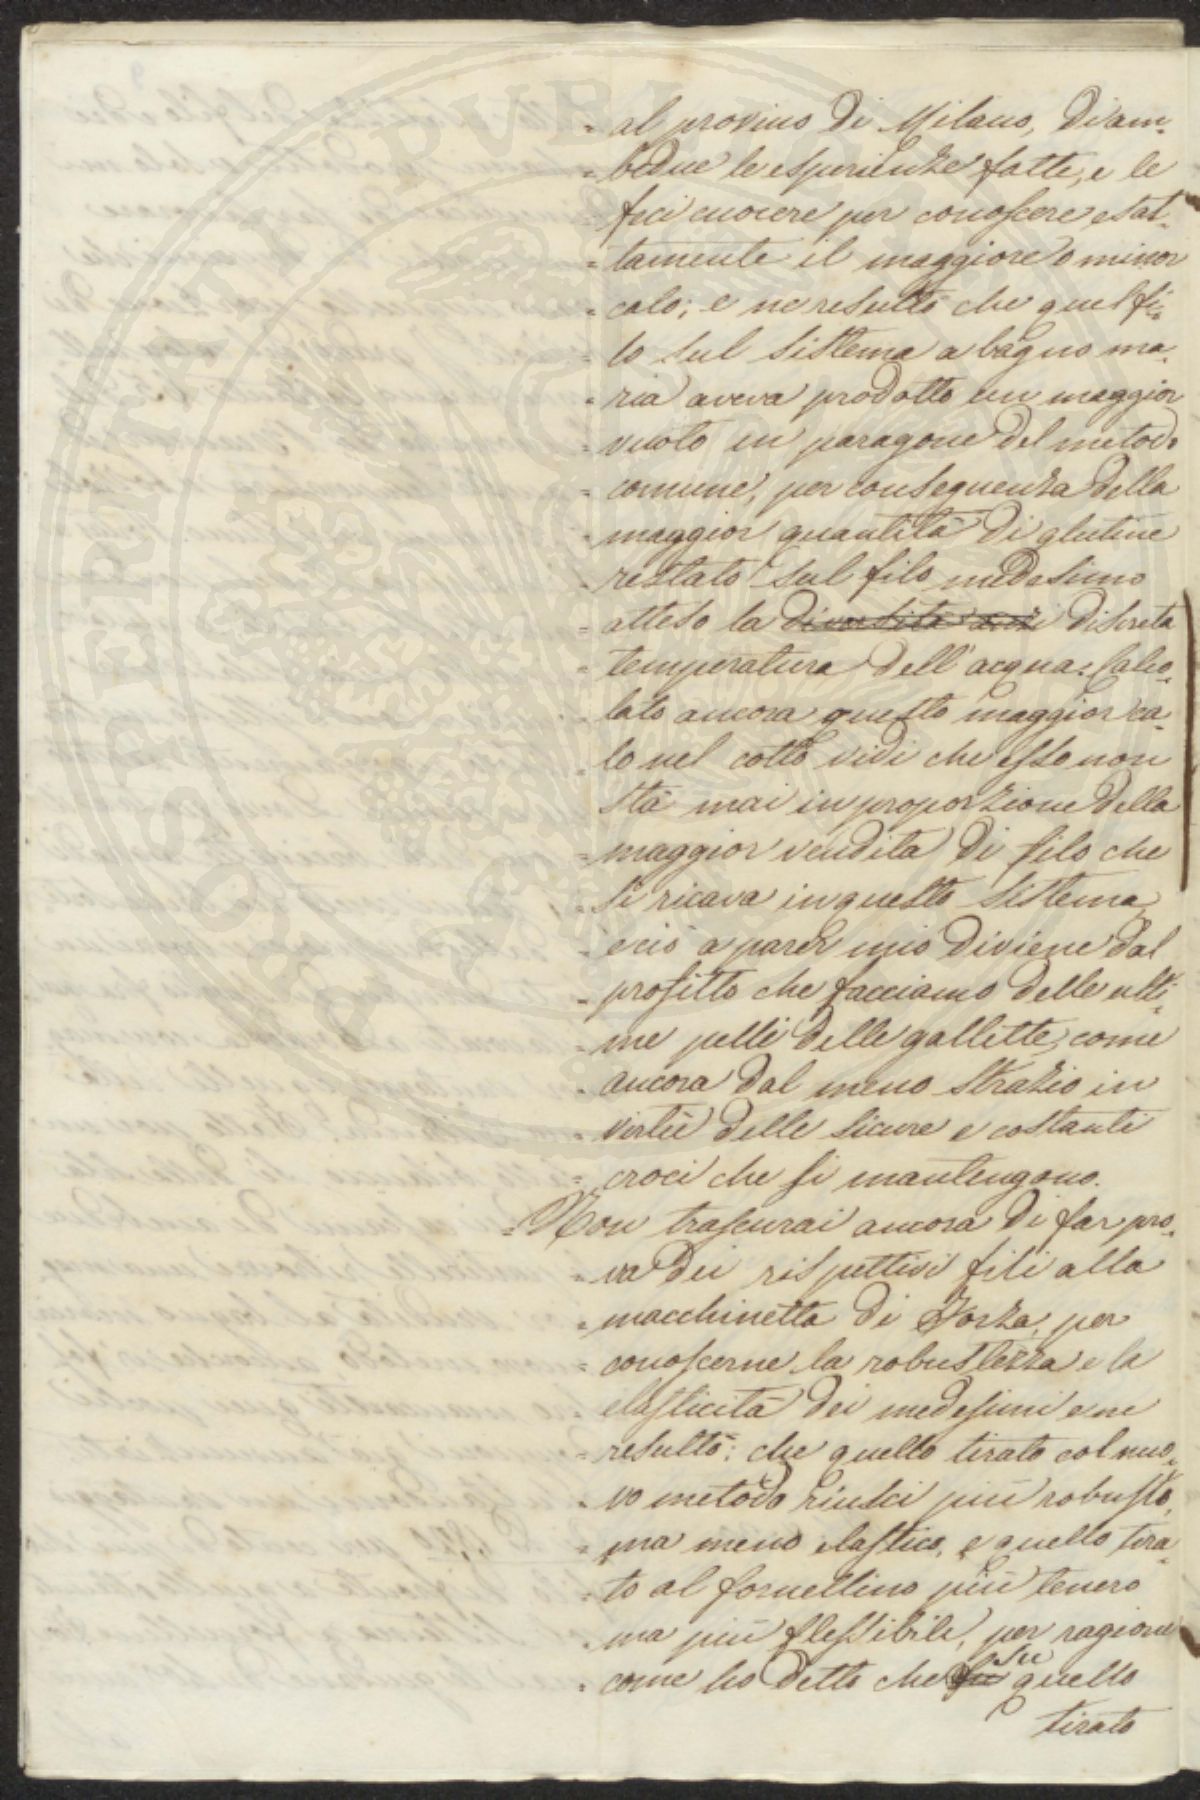 PROSPERITATI PVBLIC
= al provino di Milano, di am-
= bedue le esperienze fatte, e le
feci cuocere per conoscere esat-
= tamente il maggiore o minor
= calo; e ne resultò che quel fi-
= lo sul sistema a bagno ma-
= ria aveva prodotto un maggior
= vuoto in paragone del metodo
= comune, per conseguenza della
= maggior quantità di glutine
= restato sul filo medesimo
= atteso la diversità anzi discreta
= temperatura dell'acqua: Calco-
lato ancora questo maggior ca-
= lo nel cotto vidi che esso non
stà mai in proporzione della
= maggior vendita di filo che
= si ricava in questo sistema,
e ciò a parer mio diviene dal
= profitto che facciamo delle ulti-
= me pelli delle gallette, come
= ancora dal meno strazio in
= virtù delle sicure e costanti
= croci che si mantengono.
= Non trascurai ancora di far pro-
= va dei rispettivi fili alla
= macchinetta di Forza, per
= conoscerne la robustezza e la
= elasticità dei medesimi e ne
= resultò: che quello tirato col nuo-
= vo metodo riuscì più robusto,
= ma meno elastico, e quello tira-
= to al fornellino più tenero
= ma più flessibile, per ragione
su
= come ho detto che fu quello
tirato